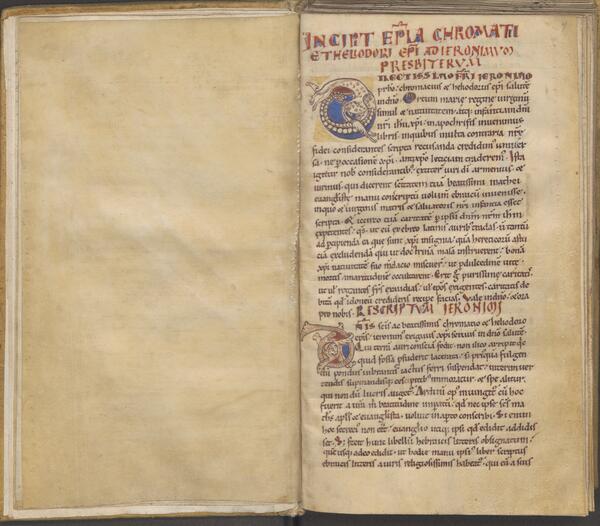 INCIPT EPLA CHROMATII
ET HELIODORI EPI AD IERONIMUM
PRESBITERUM
DILECTISSIMO FRI IERONIMO
prbo. chromacius & heliodorus epi salute
in dno. Ortum marie regine virginis
simul & natiuitatem. atq; infantia dni
nri ihu xpi. in apochrifis inuenimus
libris. in quibus multa contraria nre
fidei considerantes scripta recusanda credidim uniuer
sa. ne p occasione xpi
igitur nob considerantib; uiri di armenius &
uirinus. qui dicerent sctitatem tua beatissimi mathei
euangliste manu conscriptu volum ebraicu inuenisse.
in quo & uirginis matris & saluatoris nri infancia esset
scripta. Et iccirco tua caritate p ipsu dnm nrm ihm
expetentes. qs. ut eu ex ebreo latinis aurib; tradas. n tantu
ad percipienda ea que sunt xpi insignia. qua hereticoru astu
cia excludenda qui ut doctrina mala instruerent. bona
xpi natiuitate suo mdacio miscuer. ut p dulcedine uite
mortis amaritudine occultarent. Erit g purissime caritatis.
ut ul rogantes frs exaudias. ul epos exigentes. caritatis de
bitu qd idoneu credideris recipe facias. Vale in dno. & ora
pro nobis. RESCRIPTUM IERONIMI
DNIS scis ac beatissimis chromatio & heliodoro
epis. ieronim exiguus xpi seruus in dno salute.
Qui terra auri conscia fodit. non ilico arripit qd
quid fossa p fuderit lacerata. s; priusqua fulgen
du pondus uibrantis iactus ferri suspendat. interim uer
tendis supinandisq; cespitib; immoratur. & spe alitur.
qui non du lucris auget. Arduu op iniungit cu hoc
fuerit a ura m beatitudine impatu. qd nec ipse scs ma
ths apls & euanglista. voluit in apto conscribi. Si enim
hoc secreti non ēet. euanglio utiq; ipsi qd edidit addidis
set. S; fecit hunc libellu hebraicis litteris obsignatum.
que usq; adeo edidit. ut hodie manu ipsi liber scriptus
ebraicis litteris a uiris religiosissimis habeat. qui eu a suis